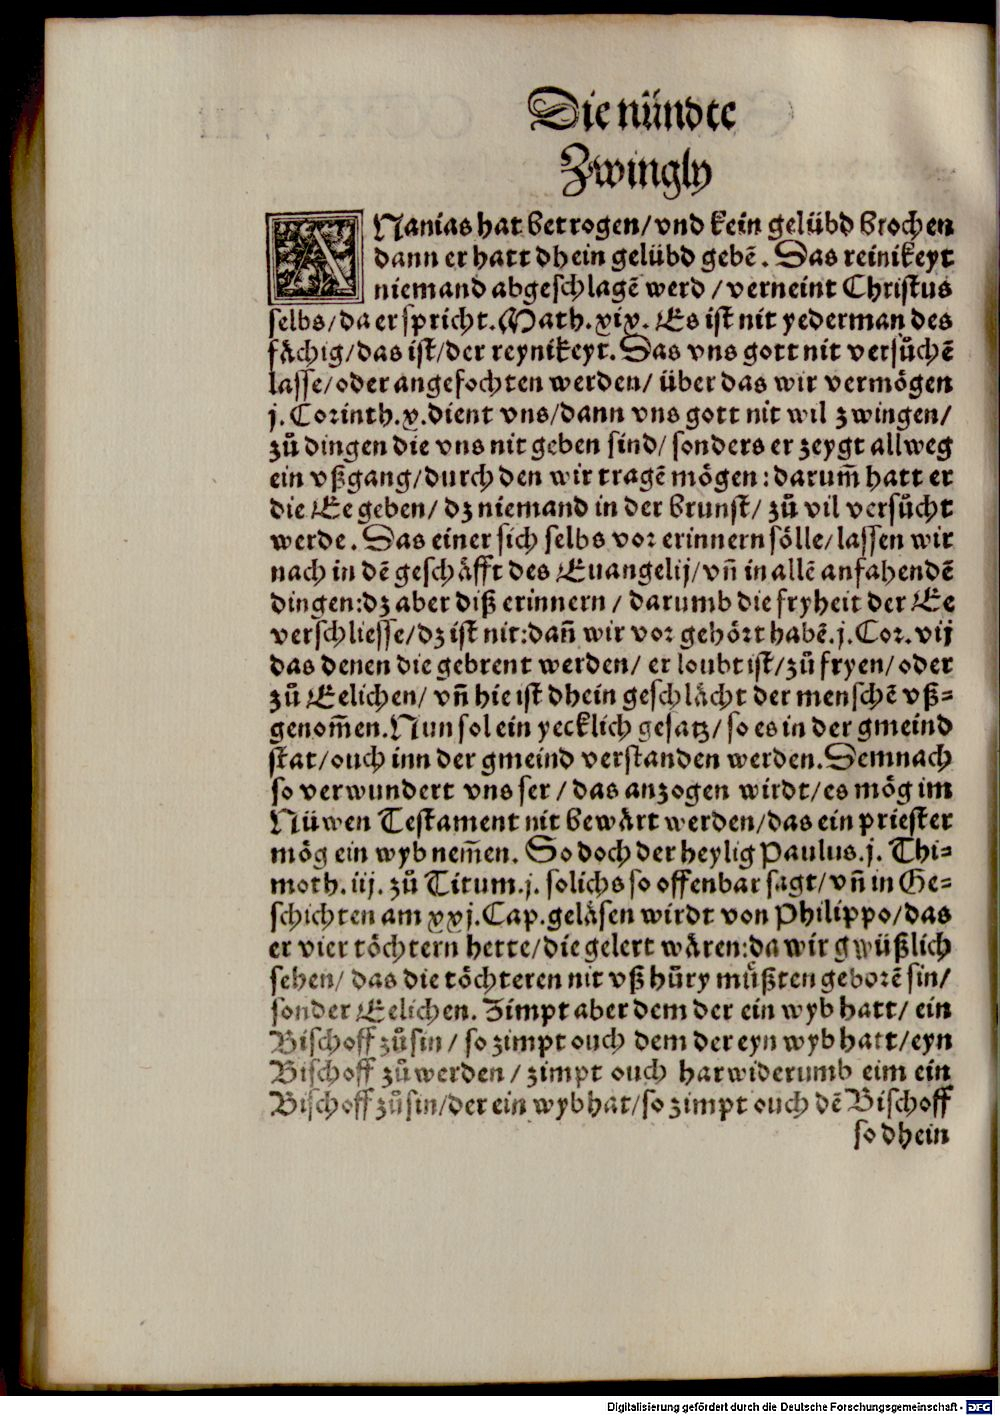 Die nündte
Zwingly
ANanias hat betrogen/vnd kein gelübd brochen
dann er hatt dhein gelübd gebẽ. Das reinikeyt
niemand abgeschlagẽ werd/verneint Christus
selbs/da er spricht. Math.xix. Es ist nit yederman des
fächig/das ist/der reynikeyt. Das vns gott nit versůchẽ
lasse/oder angefochten werden/über das wir vermögen
j.Corinth.x.dient vns/dann vns gott nit wil zwingen/
zů dingen die vns nit geben sind/sonders er zeygt allweg
ein vßgang/durch den wir tragẽ mögen:darum̃ hatt er
die Ee geben/dz niemand in der brunst/zů vil versůcht
werde. Das einer sich selbs vor erinnern sölle/lassen wir
nach in dẽ geschäfft des Euangelij/vñ in allẽ anfahendẽ
dingen:dz aber diß erinnern/darumb die fryheit der Ee
verschliesse/dz ist nit:dañ wir vor gehört habẽ.j.Cor.vij
das denen die gebrent werden/erloubt ist/zů fryen/oder
zů Eelichen/vñ hie ist dhein geschlächt der menschẽ vß=
genom̃en. Nun sol ein yecklich gesatz/so es in der gmeind
stat/ouch inn der gmeind verstanden werden. Demnach
so verwundert vns ser/das anzogen wirdt/es mög im
Nüwen Testament nit bewärt werden/das ein priester
mög ein wyb nem̃en. So doch der heylig Paulus.j. Thi=
moth.iij. zů Titum.j. solichs so offenbar sagt/vñ in Ge=
schichten am xxj.Cap.geläsen wirdt von Philippo/das
er vier töchtern hette/die gelert wären:da wir gwüßlich
sehen/das die töchteren nit vß hůry můßten geborẽ sin/
sonder Eelichen. Zimpt aber dem der ein wyb hatt/ein
Bischoff zů sin/so zimpt ouch dem der eyn wyb hatt/eyn
Bischoff zů werden/zimpt ouch harwiderumb eim ein
Bischoff zů sin/der ein wyb hat/so zimpt ouch dẽ Bischoff
so dhein
Digitalisierung gefördert durch die Deutsche Forschungsgemeinschaft - DFG